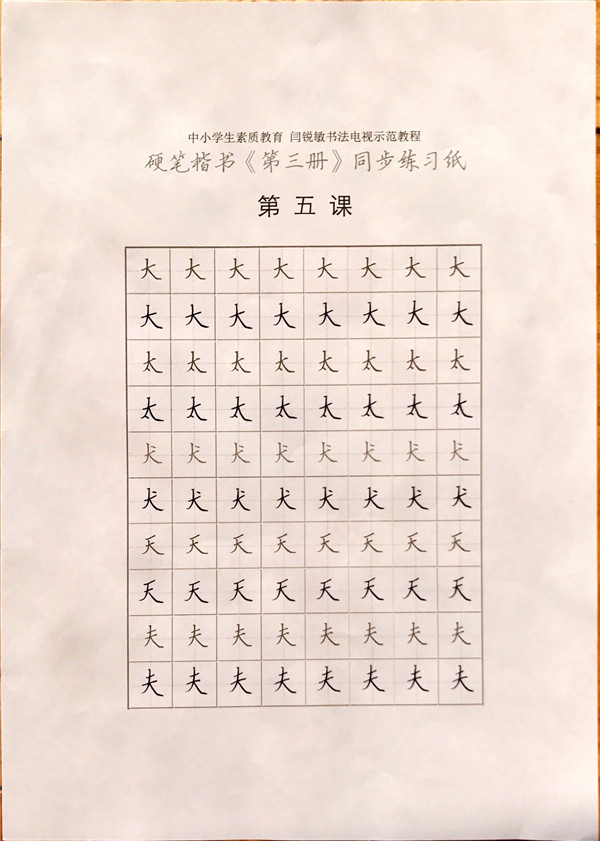 中小学生素质教育 闫锐敏书法电视示范教程
硬笔楷书《第三册》同步练习纸
第五课
大大大大大大大大
大大大大大大大大
太太太太太太太太
太太太太太太太太
犬犬犬犬犬犬犬犬
犬犬犬犬犬犬犬犬
天天天天天天天天
天天天天天天天天
夫夫夫夫夫夫夫夫
夫夫夫夫夫夫夫夫